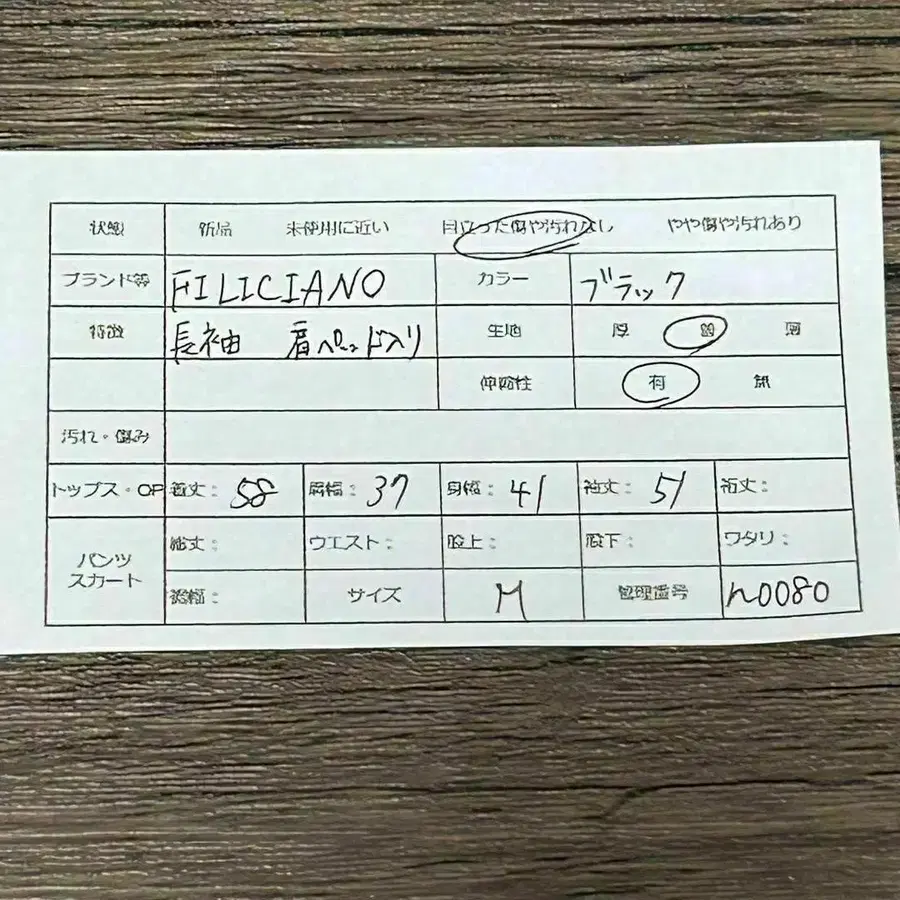 状態 新品 未使用に近い 目立った傷や汚れなし やや傷や汚れあり
ブランド等 FILICIANO カラー ブラック
特徴 長袖 肩パッド入り 生地 厚 普 薄
伸縮性 有 無
汚れ・傷み
トップス・OP 着丈: 58 肩幅: 37 身幅: 41 袖丈: 51 裄丈:
パンツ スカート 総丈: ウエスト: 股上: 股下: ワタリ:
裾幅: サイズ M 管理番号 n0080